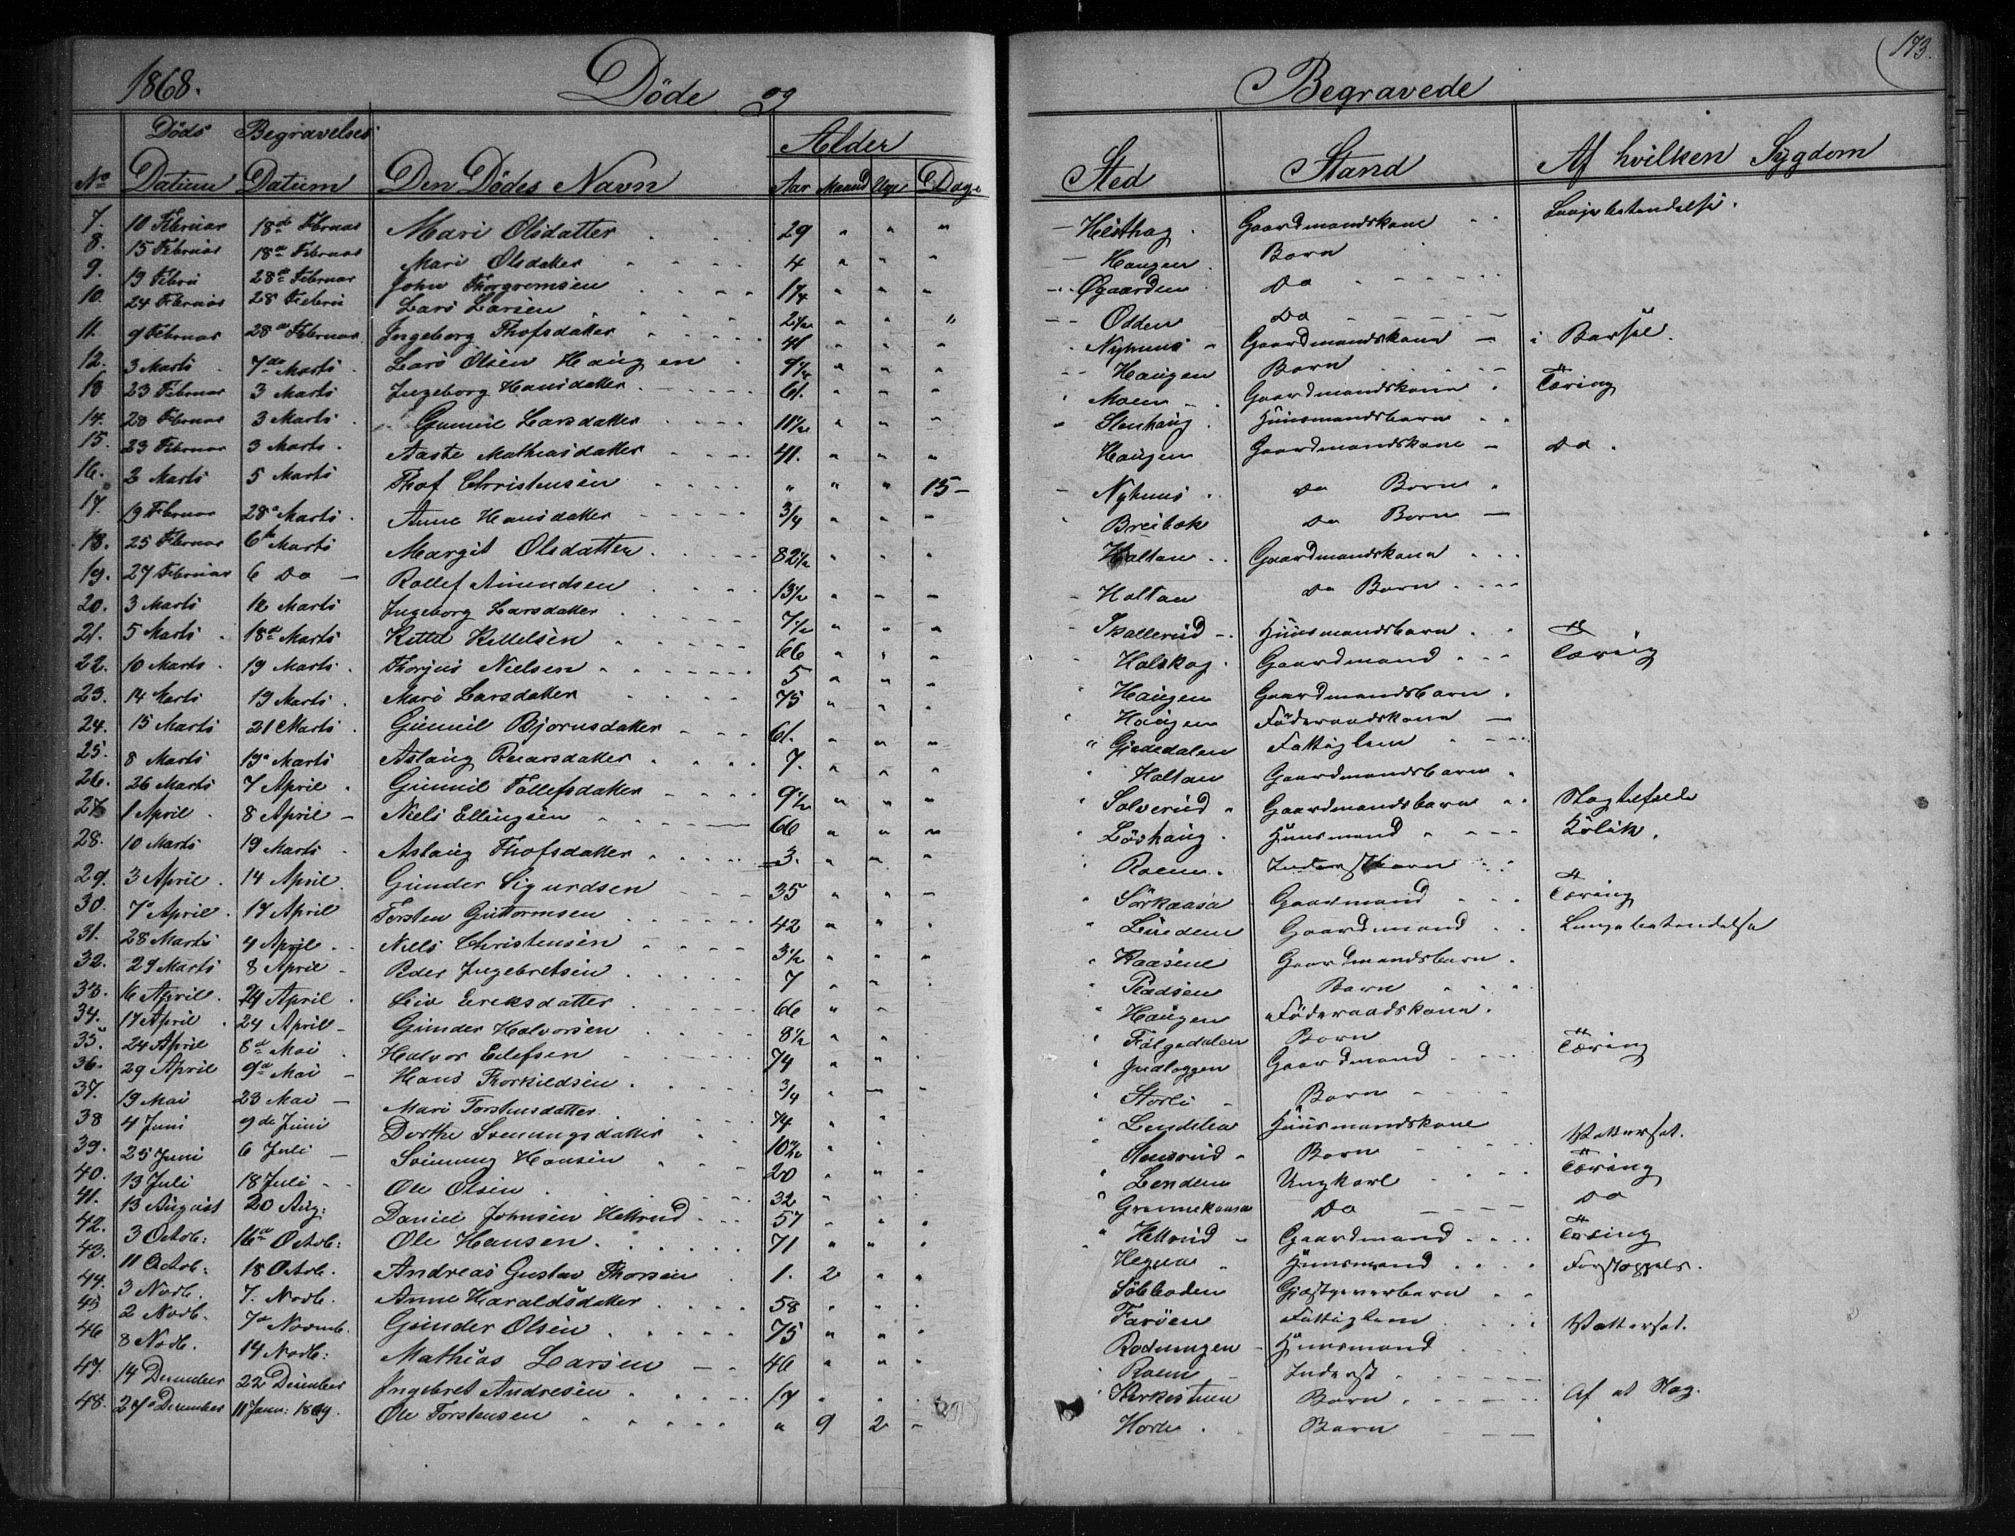 173.
1868. Döde og Begravede
No Döds Datum Begravelses Datum Den Dödes Navn Alder Aar Maand Uge Dage Sted Stand Af hvilken Sygdom
7. 10 Februar 18de Februar Mari Olsdatter 29 " " " Heithag Gaardmandskone Lungebetendelse.
8. 15 Februar 18de Februar Mari Olsdatter 4 " " " Haugen Barn
9. 19 Februar 28de Februar John Thorgremsen 1/4 " " " Øgaarden Do
10. 24 Februar 28 Februar Lars Larsen 2 1/2 " " " Odden Do
11. 9 Februar 28de Februar Ingeborg Thofsdatter 41 " " " Nyhuus Gaardmandskone i Barsel.
12. 3 Marts 7de Marts Lars Olsen Haugen 9 1/4 " " " Haugen Barn
13 23 Februar 3 Marts Ingeborg Hansdatter 61. " " " Moen Gaardmandskone Tæring
14. 20 Februar 3 Marts Gunnil Larsdatter 11 1/2 " " " Stenhaug Huusmandsbarn
15. 23 Februar 3 Marts Aaste Mathiasdatter 41. " " " Haugen Gaardmandskone Do.
16. 2 Marts 5 Marts Thof Christensen " " " 15 Nyhuus Do Barn
17. 19 Februar 28 Marts Anne Hansdatter 3/4 " " " Breibæk Do Barn
18. 25 Februar 6te Marts Margit Olsdatter 82 1/2 " " " Haltan Gaardmandskone
19. 27 Februar 6 Do Rollef Amundsen 13 1/2 " " " Haltan Do Barn
20. 3 Marts 12 Marts Ingeborg Larsdatter 7 1/2 " " " Skallerud Huusmandsbarn
21. 5 Marts 18de Marts Kittel Kittelsen 66 " " " Halskog Gaardmand Tæring
22. 10 Marts 19 Marts Thorjus Nielsen 5 " " " Haugen Gaardmandsbarn
23. 14 Marts 19 Marts Mari Larsdatter 75 " " " Haugen Föderaadskone
24. 15 Marts 21 Marts Gunnil Bjornsdatter 61. " " " Gjededalen Fattiglem
25. 8 Marts 19 Marts Aslaug Ruarsdatter 7. " " " Haltan Gaardmandsbarn
26. 26 Marts 7 April Gunnil Tollefsdatter 9 1/2 " " " Solverud Gaardmandsbarn Slagtilfælde
27 1 April 8 April Niels Ellingsen 66 " " " Løshaug Huusmand Kolik.
28. 10 Marts 19 Marts Aslaug Thofsdatter 3. " " " Roem Inderstbarn
29. 3 April 14 April Gunder Sigurdsen 35 " " " Sørkaasa Gaarmand Tæring
30. 7 April 17 April Torsten Guttormsen 42 " " " Linden Gaardmand Lungebetendelse
31. 28 Marts 4 April Niels Christensen 3 1/2 " " " Kaasene Gaardmandsbarn
32. 29 Marts 8 April Peder Ingebretsen 7 Pladsen Barn
33. 16 April 24 April Siri Eriksdatter 66 " " Haugen Föderaadskone
34. 17 April 24 April Gunder Halvorsen 8 1/2 " " Følgedalen Barn
35. 24 April 8de Mai Halvor Eilefsen 74 " " " Indloggen Gaardmand Tæring
36. 29 April 9de Mai Hans Thorkildsen 3/4 " " " Storli Barn
37. 19 Mai 23 Mai Mari Torstensdatter 74 " " Lindelia Huusmandskone
38 4 Juni 9de Juni Dorthe Svenungsdatter 10 1/2 " " Stensrud Barn Vattersot.
39. 25 Juni 6 Juli Svenung Hansen 20 " " " Lenden Ungkarl Tæring
40. 13 Juli 18 Juli Ole Olsen 32 " " " Grønnekaasa Do Do
41. 13 August 20 Aug: Daniel Johnsen Hellrud 57 " " " Hellrud Gaardmand Tæring
42. 3 Octob: 16de Octob: Ole Hansen 71 " " " Hegna Huusmand Forstoppels.
43. 11 Octob: 18 Octob. Andreas Gustav Thorsen 1. 2 " " Sölleboden Gjæstgeverbarn
44. 3 Novb. 7. Novb. Anne Haraldsdatter 58 " " " Farøen Fattiglem Vattersot.
45 2 Novb. 7de Novemb. Gunder Olsen 75 " " " Rodningen Huusmand
46 8 Novb. 14 Novb: Mathias Larsen 46 " " " Roem Inderst
47. 14 December 22 December Ingebret Andresen 17 " " " Kirkestuen Barn Af et Slag.
48. 27 December 11 Janr: 1869. Ole Torstensen " 9 2 " Horte Barn